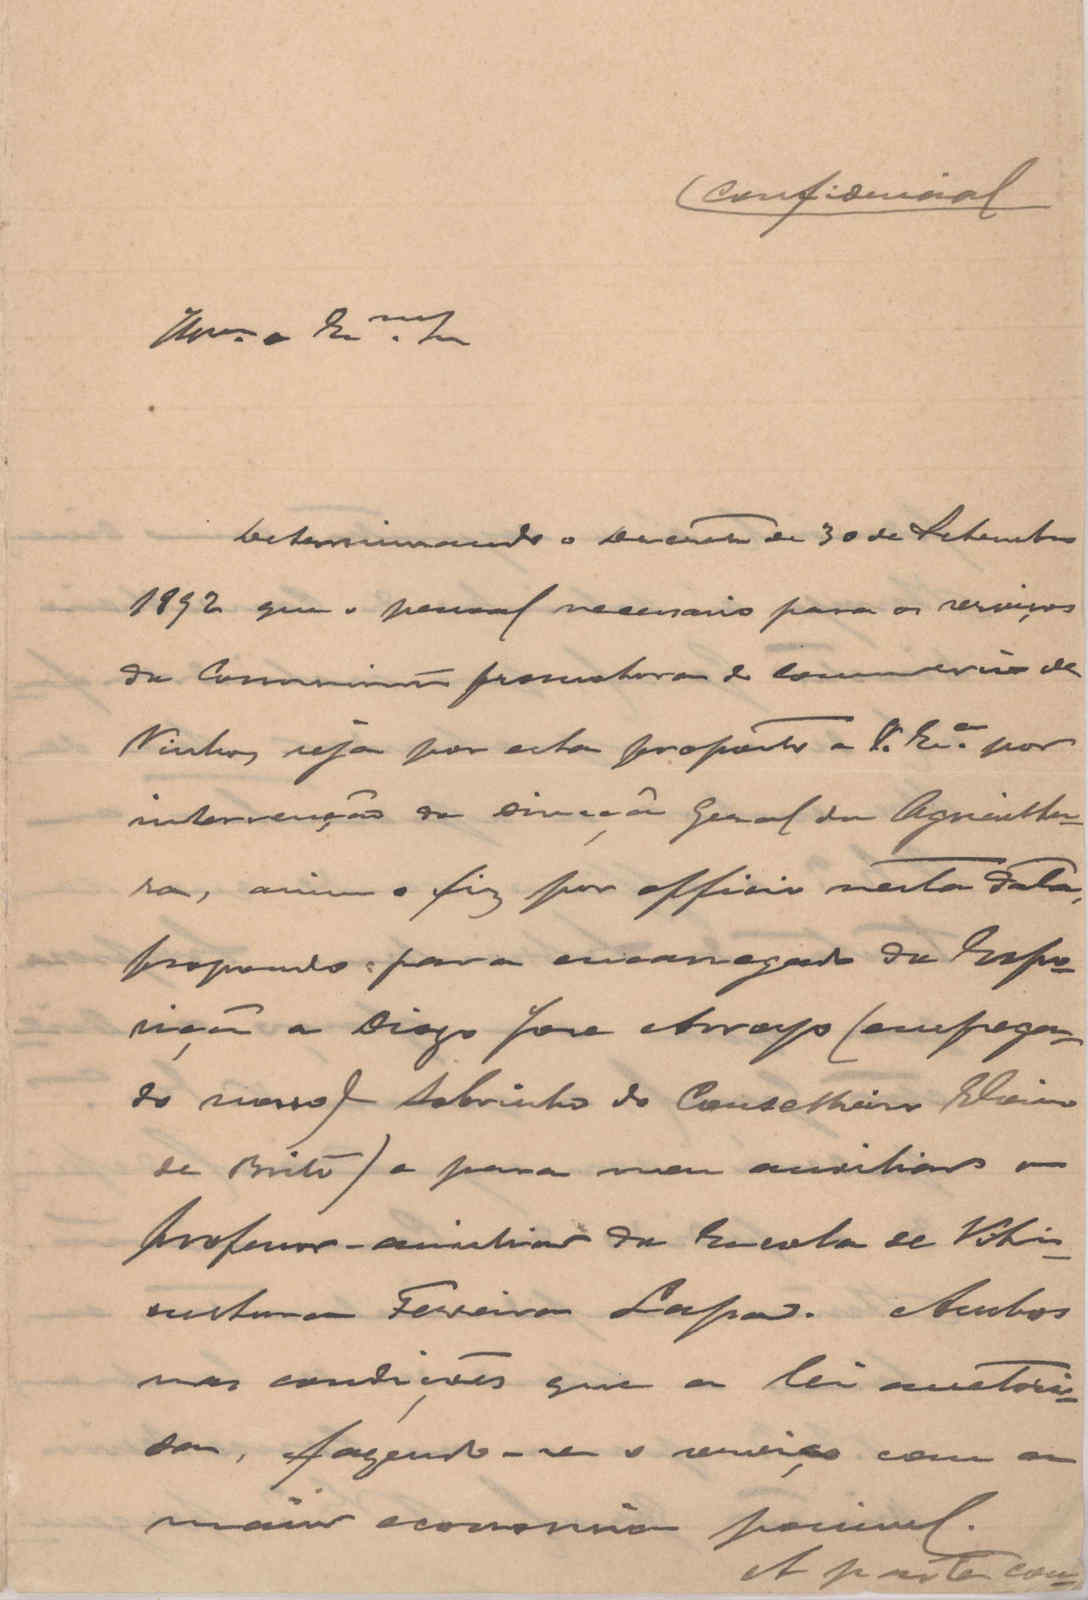 Confidencial
Illmo. e Exmo. Sr.
Determinando o Decreto de 30 de Setembro
1892 que o pessoal necessario para os serviços
da Commissão promotora do commercio de
Vinhos, seja por esta proposto a V. Exa. por
intervenção da Direcção Geral da Agricultu-
ra, assim o fiz por officio nesta data,
propondo para encarregado da Expo-
sição a Diogo José Arroyo (emprega-
do nosso) sobrinho do Conselheiro Elvino
de Brito) e para meu auxiliar o
professor-auxiliar da Escola de Viti-
cultura Ferreira Lapa. Ambos
nas condições que a lei auctori-
sa, fazendo-se o serviço com a
maior economia possivel.
A parte com-